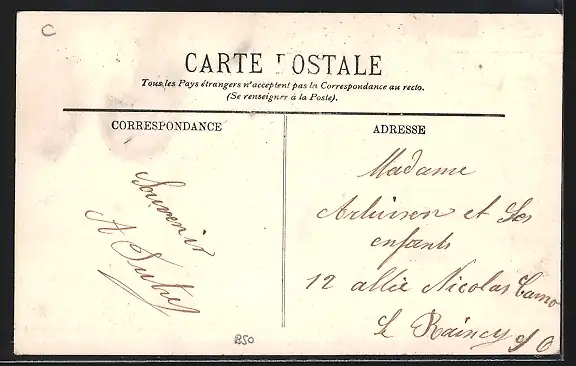 C
CARTE POSTALE
Tous les Pays étrangers n'acceptent pas la Correspondance au recto.
(Se renseigner à la Poste).
CORRESPONDANCE
ADRESSE
Souvenir
A
Madame
et Ses
enfants
12 allée Nicolas Carno
Le Raincy S O
B50